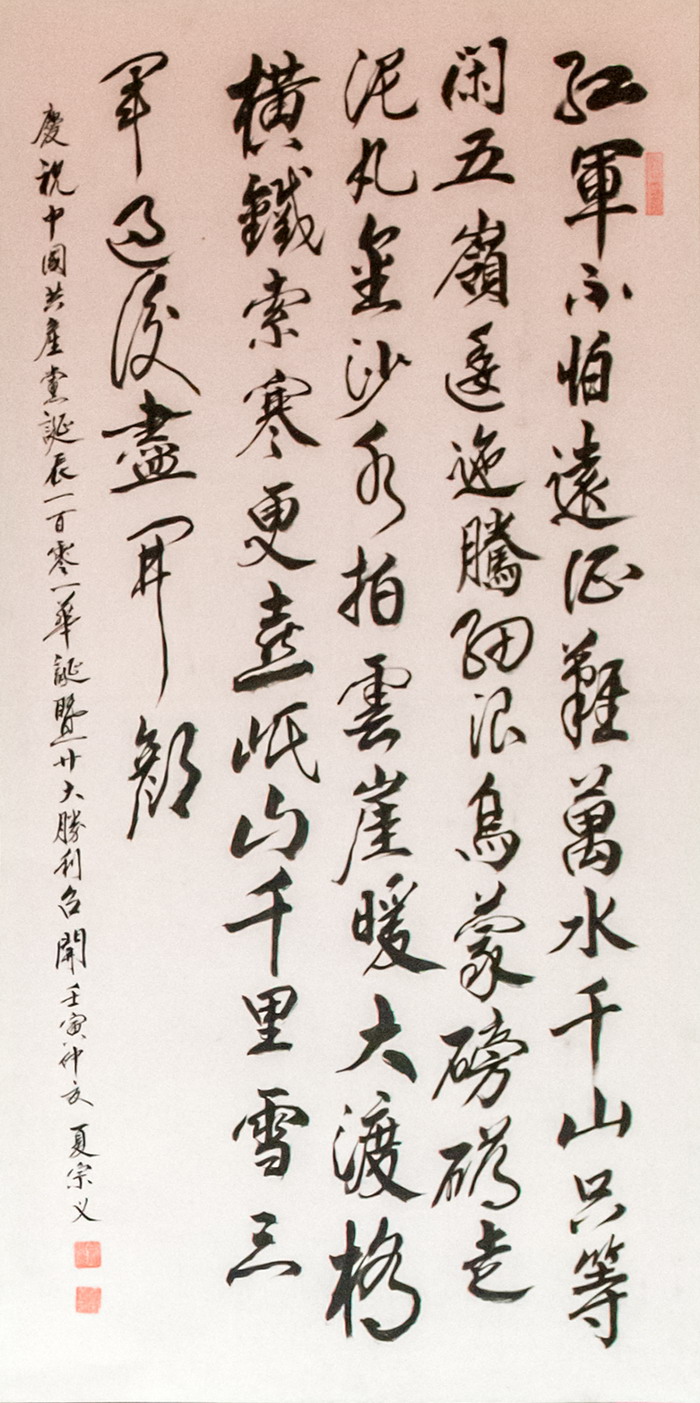 紅軍不怕遠征難萬水千山只等
閑五嶺逶迤騰細浪烏蒙磅礴走
泥丸金沙水拍雲崖暖大渡橋
橫鐵索寒更喜岷山千里雪三
軍過後盡開顏
慶祝中國共產黨誕辰一百零一華誕暨廿大勝利召開 壬寅仲夏 夏宗义